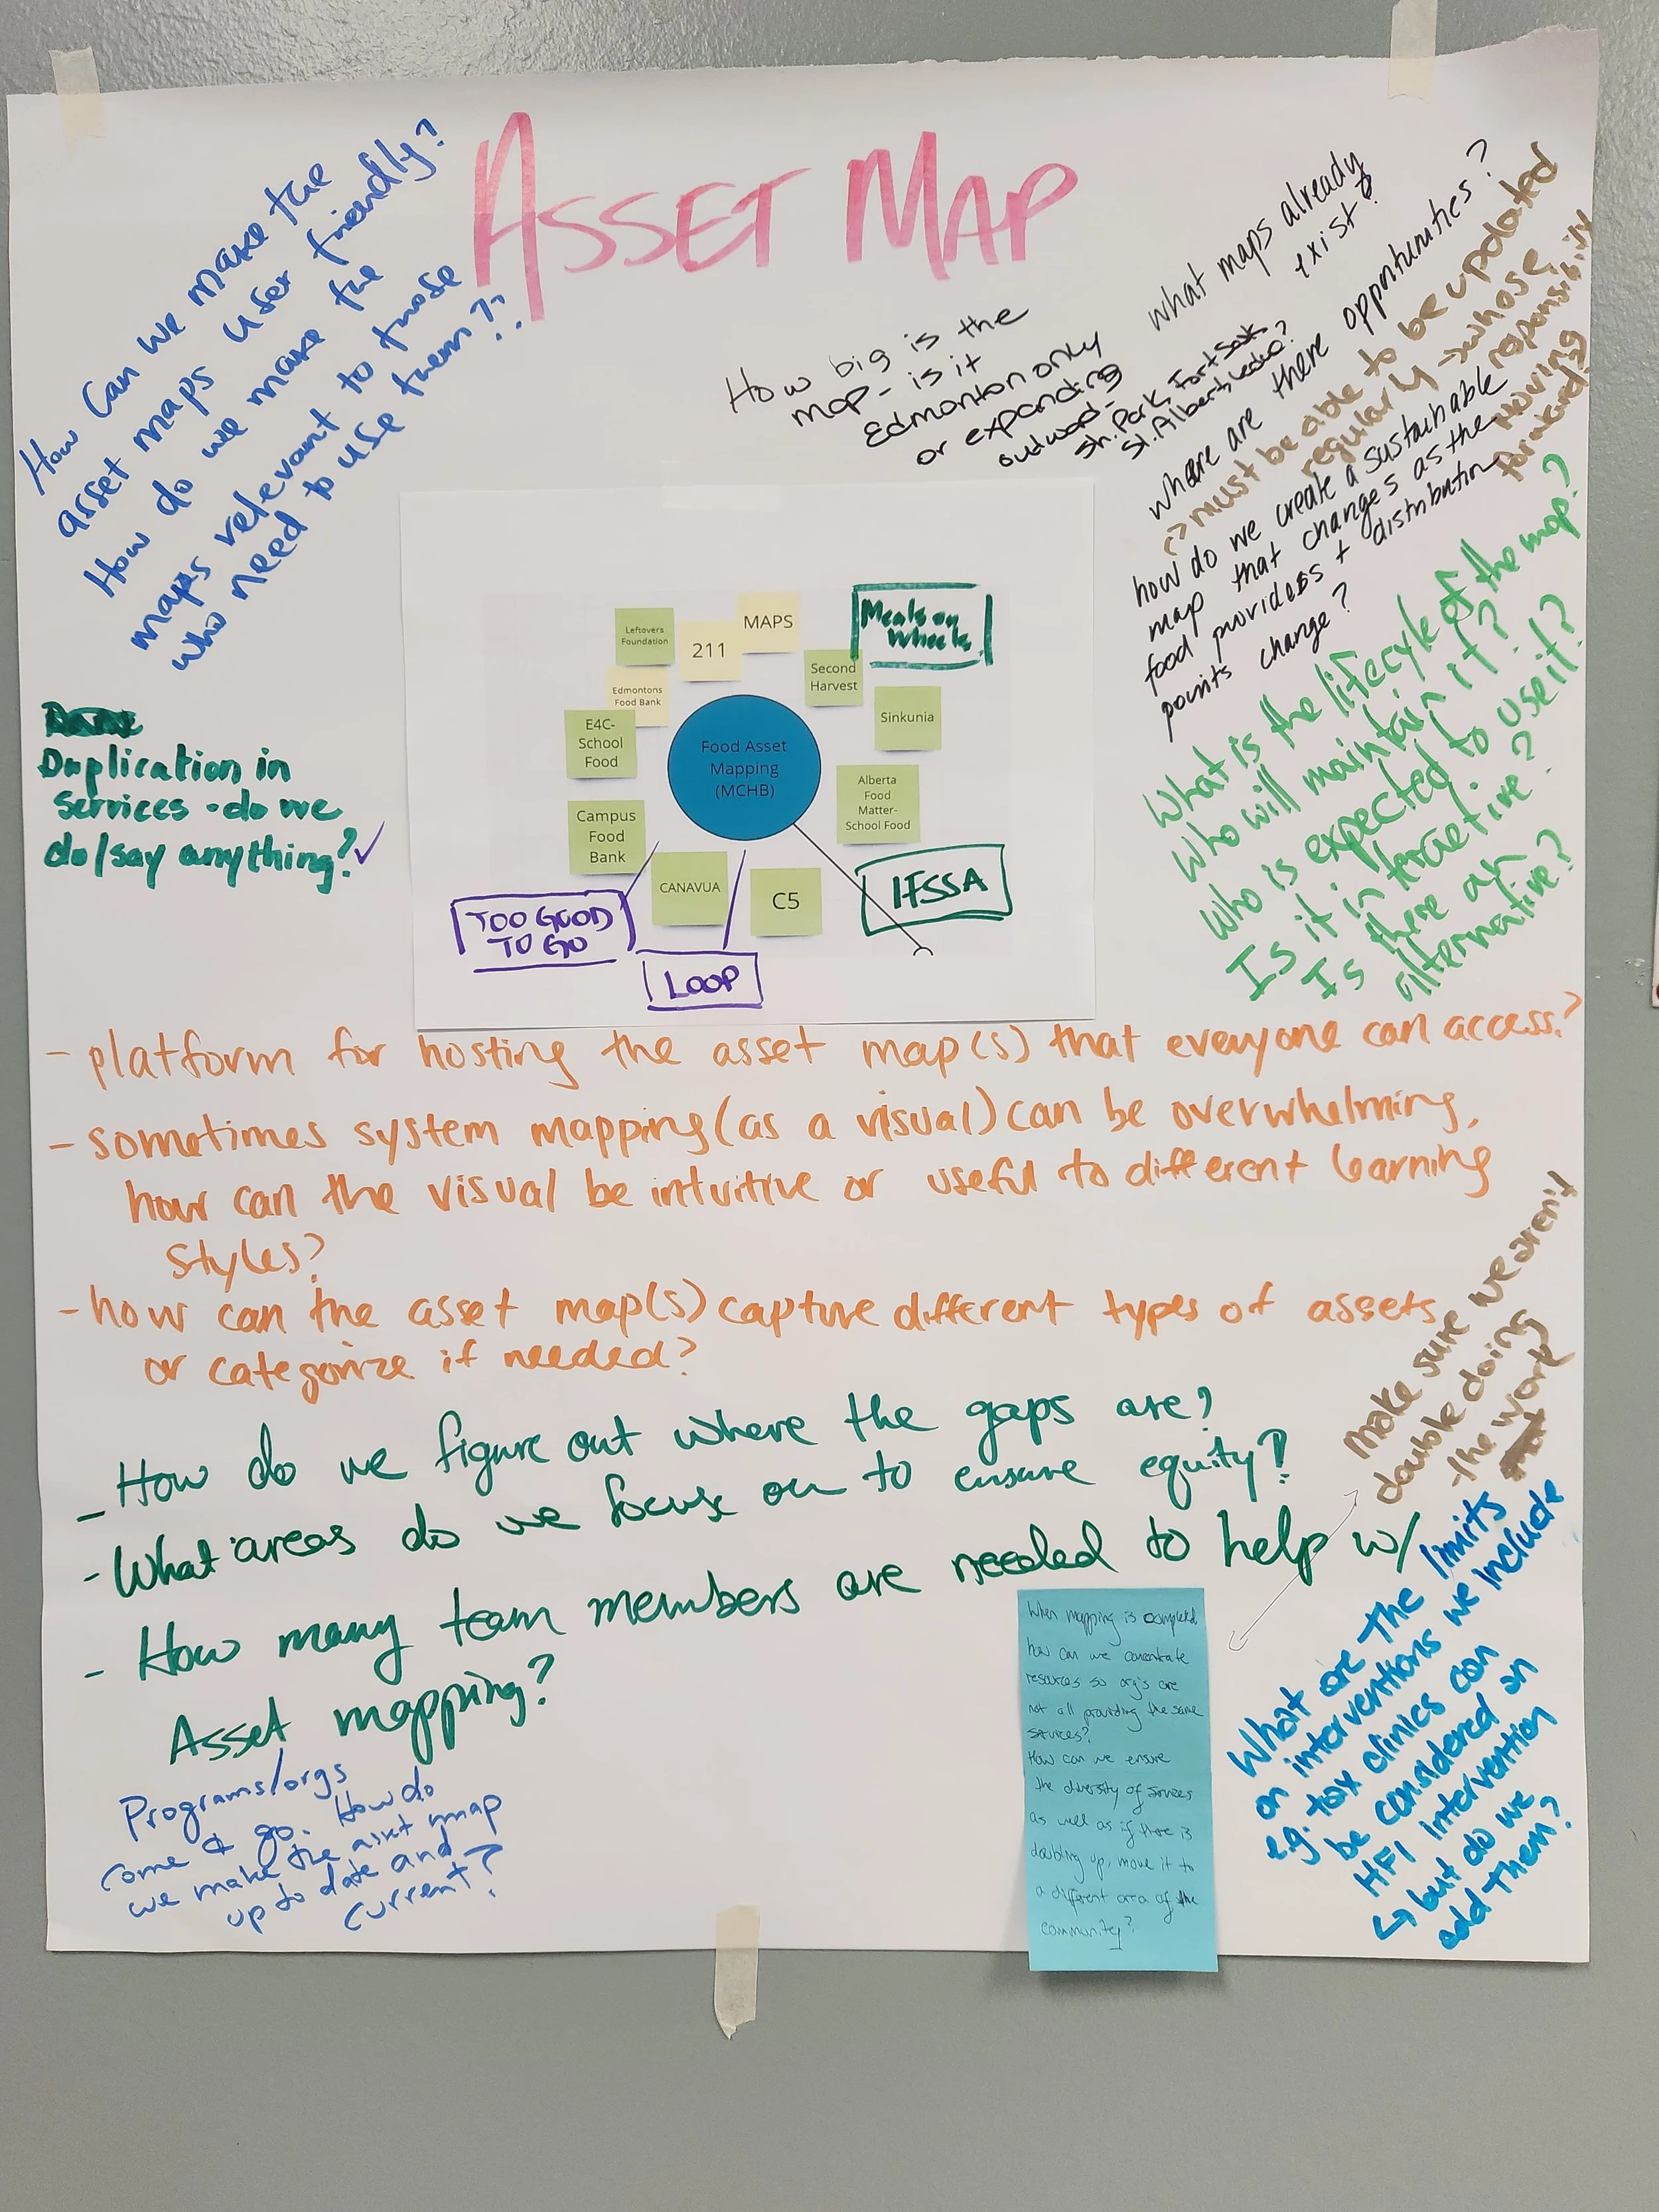 ASSET MAP
How can we make the
asset maps user friendly?
How do we make the
maps relevant to those
who need to use them??
How big is the
map - is it
Edmonton only
or expanding
outward -
Sh. Park, Fort Sask
St. Albert, Leduc?
what maps already
exist?
where are there opportunities?
↳ must be able to be updated
regularly → whose
responsibility
moving
forward?
how do we create a sustainable
map that changes as the
food providers + distribution
points change?
What is the lifecyle of the map?
Who will maintain it?
Who is expected to use it?
Is it interactive?
Is there an
alternative?
Duplication in
services - do we
do/say anything? ✓
Leftovers
Foundation
211
MAPS
Meals on
Wheels
Edmontons
Food Bank
Second
Harvest
E4C-
School
Food
Sinkunia
Food Asset
Mapping
(MCHB)
Alberta
Food
Matter-
School Food
Campus
Food
Bank
CANAVUA
C5
IFSSA
TOO GOOD
TO GO
LOOP
- platform for hosting the asset map(s) that everyone can access?
- sometimes system mapping (as a visual) can be overwhelming,
how can the visual be intuitive or useful to different learning
styles?
- how can the asset map(s) capture different types of assets
or categorize if needed?
- How do we figure out where the gaps are?
- What areas do we focus on to ensure equity?
- How many team members are needed to help w/
Asset mapping?
make sure we aren't
double doing
the work
Programs/orgs
come & go. How do
we make the asset map
up to date and
current?
When mapping is completed
how can we concentrate
resources so org's are
not all providing the same
services?
How can we ensure
the diversity of services
as well as if there is
doubling up, move it to
a different area of the
community?
What are the limits
on interventions we include
e.g. tax clinics can
be considered an
HFI intervention
↳ but do we
add them?